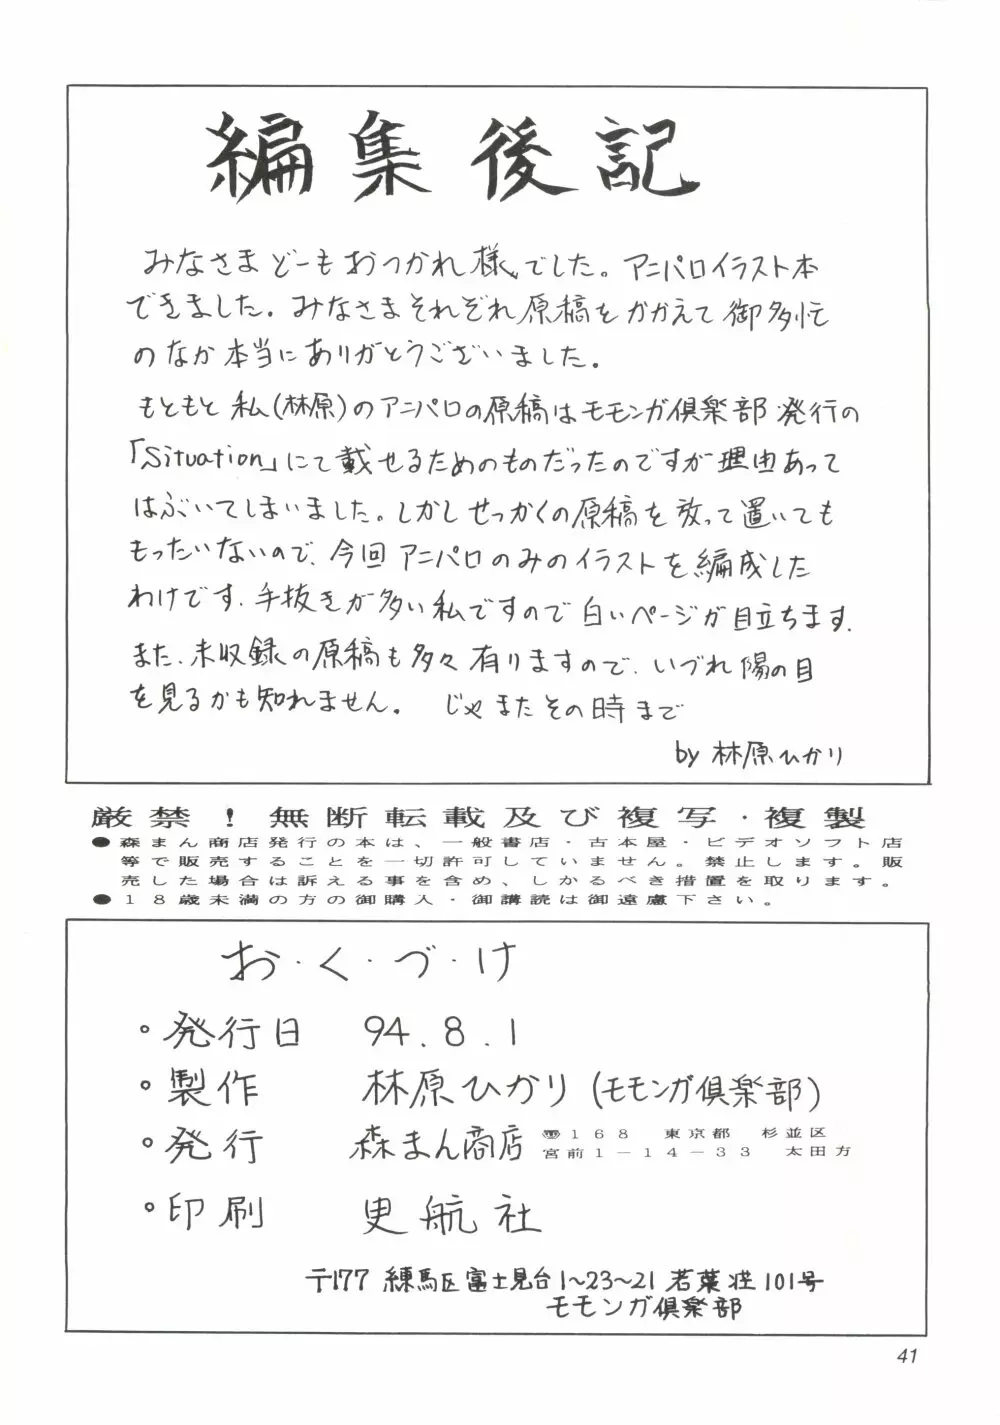 編集後記
みなさまどーもおつかれ様でした。アニパロイラスト本
できました。みなさまそれぞれ原稿をかかえて御多忙
のなか本当にありがとうございました。
もともと私(林原)のアニパロの原稿はモモンガ倶楽部発行の
「Situation」にて載せるためのものだったのですが理由あって
はぶいてしまいました。しかしせっかくの原稿を放って置いても
もったいないので、今回アニパロのみのイラストを編成した
わけです。手抜きが多い私ですので白いページが目立ちます。
また、未収録の原稿も多々有りますので、いづれ陽の目
を見るかも知れません。 じゃまたその時まで
by 林原ひかり
厳禁!無断転載及び複写・複製
●森まん商店発行の本は、一般書店・古本屋・ビデオソフト店
等で販売することを一切許可していません。禁止します。販
売した場合は訴える事を含め、しかるべき措置を取ります。
●18歳未満の方の御購入・御講読は御遠慮下さい。
お・く・づ・け
。発行日 94.8.1
。製作 林原ひかり(モモンガ倶楽部)
。発行 森まん商店 〠168 東京都 杉並区
宮前1-14-33 太田方
。印刷 史航社
〒177 練馬区富士見台1〜23〜21 若葉荘101号
モモンガ倶楽部
41